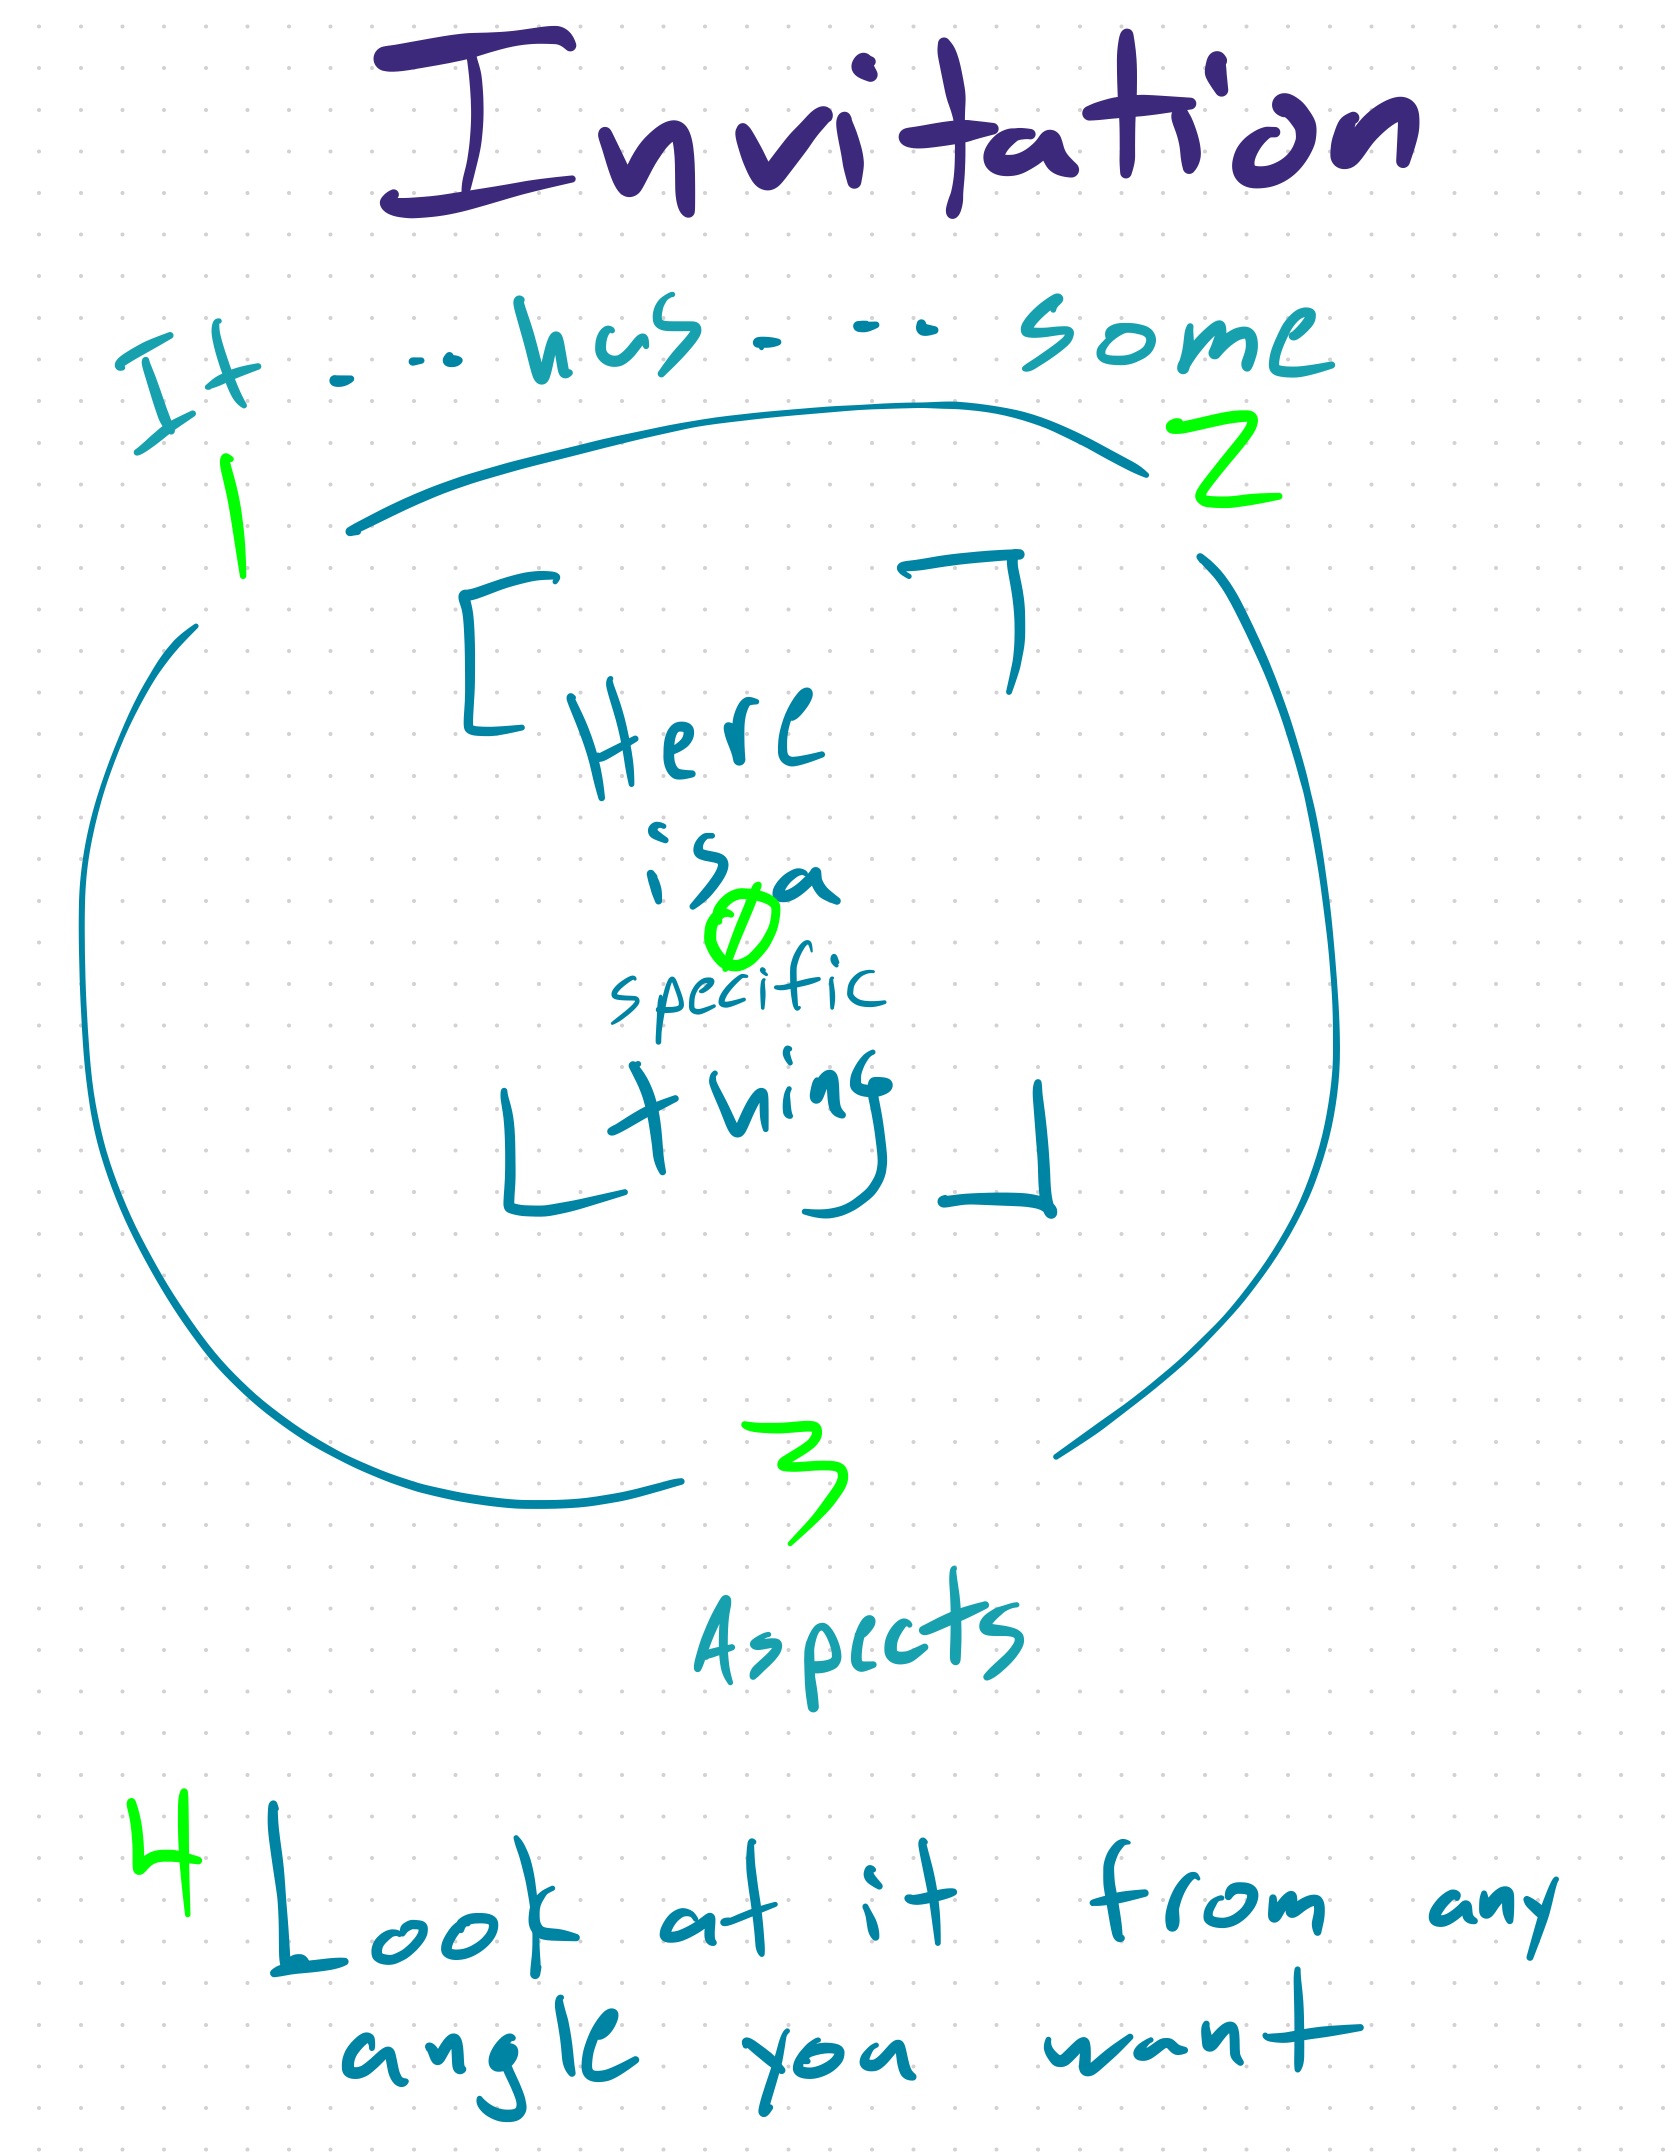 Invitation
It - -- has - -- some
1
2
[ ]
Here
is a
0
specific
thing
[ ]
3
Aspects
4 Look at it from any
angle you want